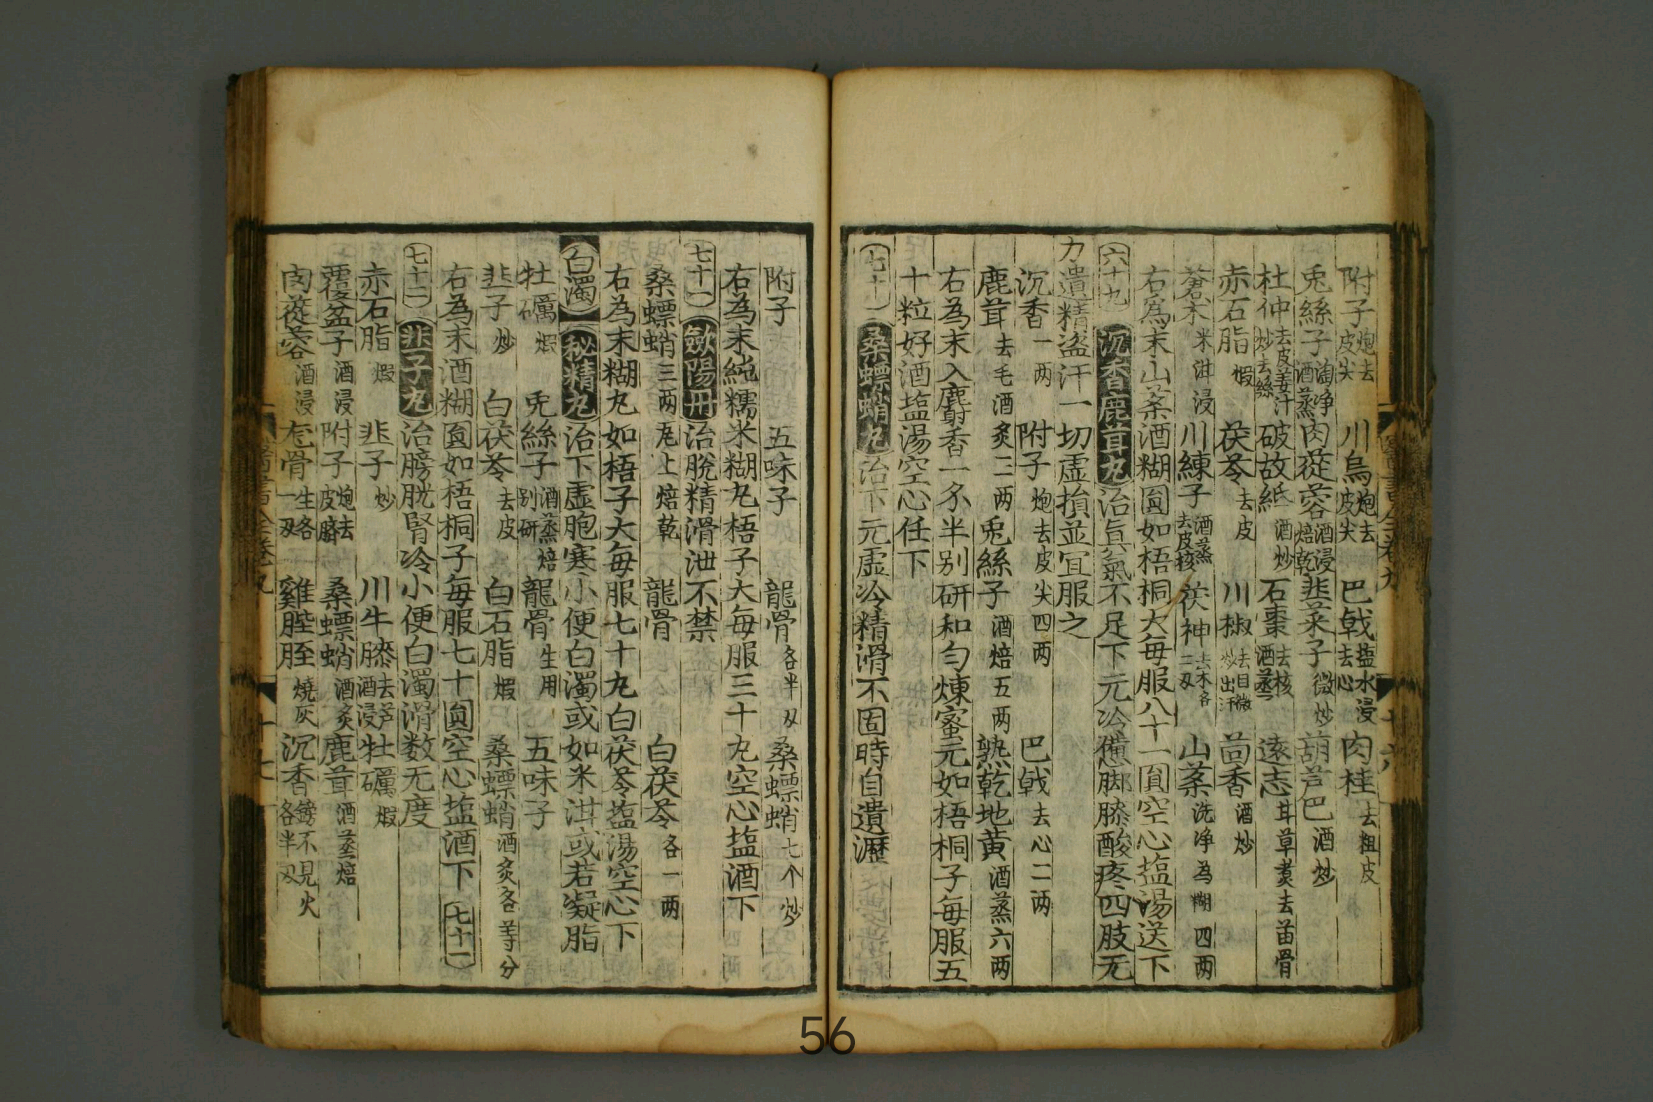 附子炮去皮尖 川烏炮去皮尖 巴戟塩水浸去心 肉桂去粗皮
兎絲子淘净酒蒸 肉蓯蓉酒浸焙乾 韭菜子微炒 葫芦巴酒炒
杜仲去皮姜汁炒去絲 破故紙酒炒 石棗去核酒蒸 遠志甘草煮去苗骨
赤石脂煆 茯苓去皮 川椒去目微炒出汗 茴香酒炒
蒼术米泔浸 川練子酒蒸去皮核 茯神去木各二刄 山茱洗净為糊四两
右爲末山茱酒糊圎如梧桐大每服八十一圎空心塩湯送下
六十九 沉香鹿茸丸 治眞氣不足下元冷憊脚膝酸疼四肢无
力遺精盗汗一切虚損並宜服之
沉香一两 附子炮去皮尖四两 巴戟去心二两
鹿茸去毛酒炙三两 兎絲子酒焙五两 熟乾地黄酒蒸六两
右為末入麝香一分半别研和匀煉蜜元如梧桐子每服五
十粒好酒塩湯空心任下
七十 桑螵蛸丸 治下元虚冷精滑不固時自遺瀝
附子 五味子 龍骨各半刄 桑螵蛸七个炒
右為末純糯米糊丸梧子大每服三十丸空心塩酒下
七十一 斂陽丹 治脫精滑泄不禁
桑螵蛸三两瓦上焙乾 龍骨 白茯苓各一两
右為末糊丸如梧子大每服七十丸白茯苓塩湯空心下
白濁 秘精丸 治下虚胞寒小便白濁或如米泔或若凝脂
牡礪煆 兎絲子酒蒸焙别研 龍骨生用 五味子
韭子炒 白茯苓去皮 白石脂煆 桑螵蛸酒炙各等分
右為末酒糊圎如梧桐子每服七十圎空心塩酒下 七十一
七十二 韭子丸 治膀胱腎冷小便白濁滑数无度
赤石脂煆 韭子炒 川牛膝去芦酒浸 牡礪煆
覆盆子酒浸 附子炮去皮臍 桑螵蛸酒炙 鹿茸酒蒸焙
肉蓯蓉酒浸 龙骨生各一刄 雞膍胵燒灰 沉香鎊不見火各半刄
醫書全卷九
十六
十七
56